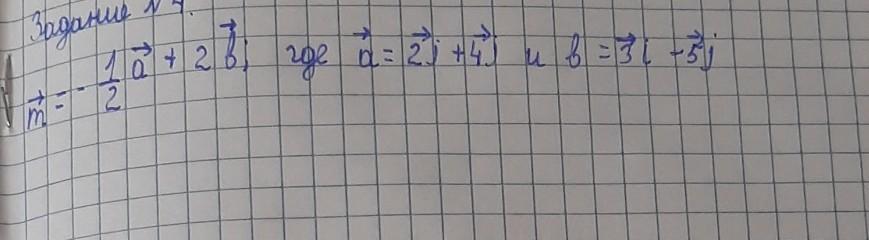 Задание №4.
m⃗ = -1/2 a⃗ + 2 b⃗; где a⃗ = 2⃗j + 4⃗j и b = 3⃗i - 5⃗j